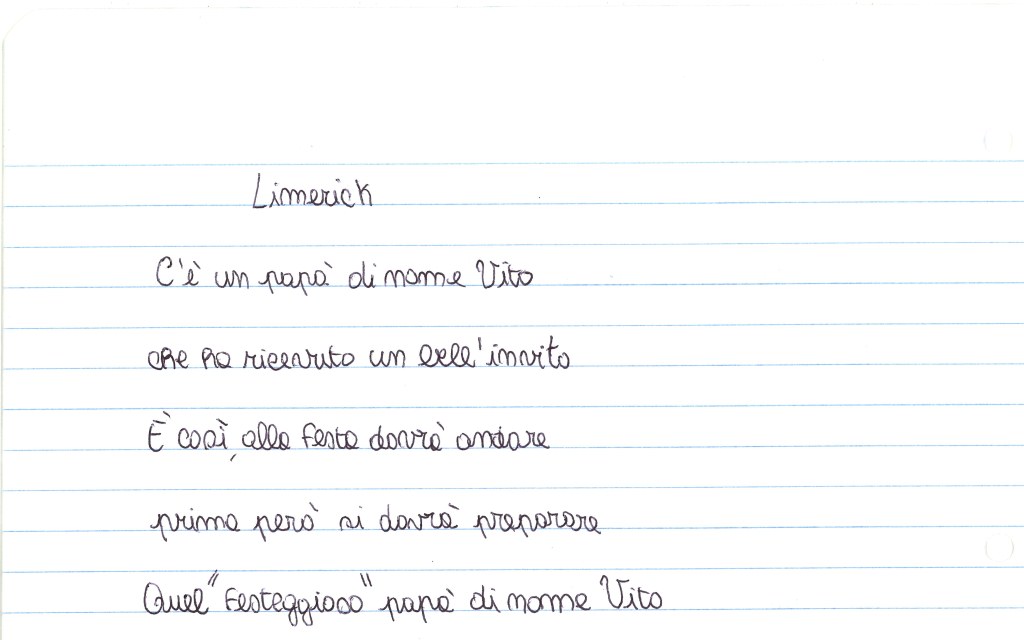 Limerick
C'è un papà di nome Vito
che ha ricevuto un bell'invito
È così, alla festa dovrà andare
prima però si dovrà preparare
Quel "festeggioso" papà di nome Vito